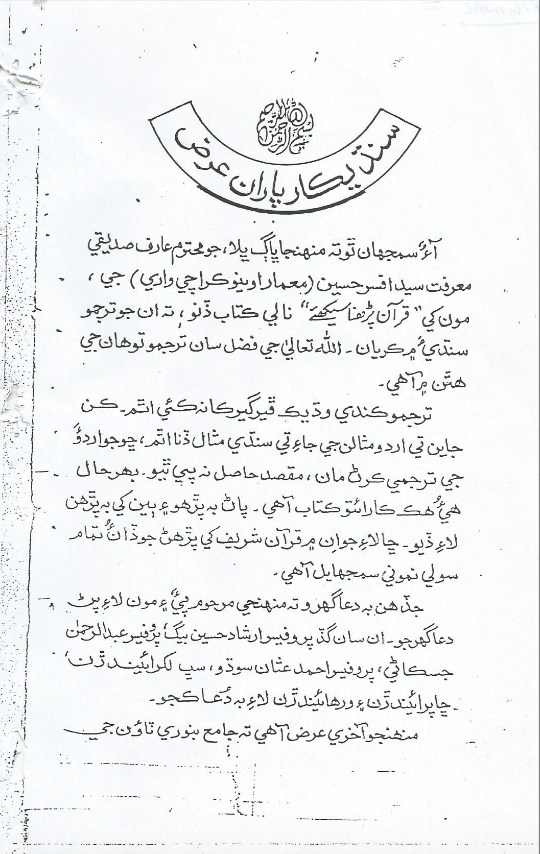 بسم الله الرحمن الرحيم
سنڌيڪار پاران عرض
آءٌ سمجهان ٿو ته منهنجا ڀاڳ ڀلا، جو محترم عارف صديقي
معرفت سيد افسر حسين (معمار اوينو ڪراچي واري) جي،
مون کي "قرآن پڙهنا سيکهئے" نالي ڪتاب ڏنو، ته ان جو ترجمو
سنڌيءَ ۾ ڪريان۔ الله تعاليٰ جي فضل سان ترجمو توهان جي
هٿن ۾ آهي۔
ترجمو ڪندي وڌيڪ ڦيرگهير ڪا نه ڪئي اٿم۔ ڪن
جاين تي اردو مثالن جي جاءِ تي سنڌي مثال ڏنا اٿم، ڇو جو اردوءَ
جي ترجمي ڪرڻ مان، مقصد حاصل نه پئي ٿيو۔ بهرحال
هيءُ هڪ ڪارائتو ڪتاب آهي۔ پاڻ به پڙهو ۽ ٻين کي به پڙهن
لاءِ ڏيو۔ ڇالاءِ جو ان ۾ قرآن شريف کي پڙهڻ جو ڏانءُ تمام
سولي نموني سمجهايل آهي۔
جڏهن به دعا گهرو ته منهنجي مرحوم پيءُ ۽ مون لاءِ پڻ
دعا گهرجو۔ ان سان گڏ پروفيسر ارشاد حسين بيگ، پروفيسر عبدالرحمٰن
جسڪاڻي، پروفيسر احمد عثمان سوڌو، سڀ لکرائيندڙن،
ڇاپرائيندڙن ۽ ورهائيندڙن لاءِ به دُعا ڪجو۔
منهنجو آخري عرض آهي ته جامع بنوري ٽائون جي